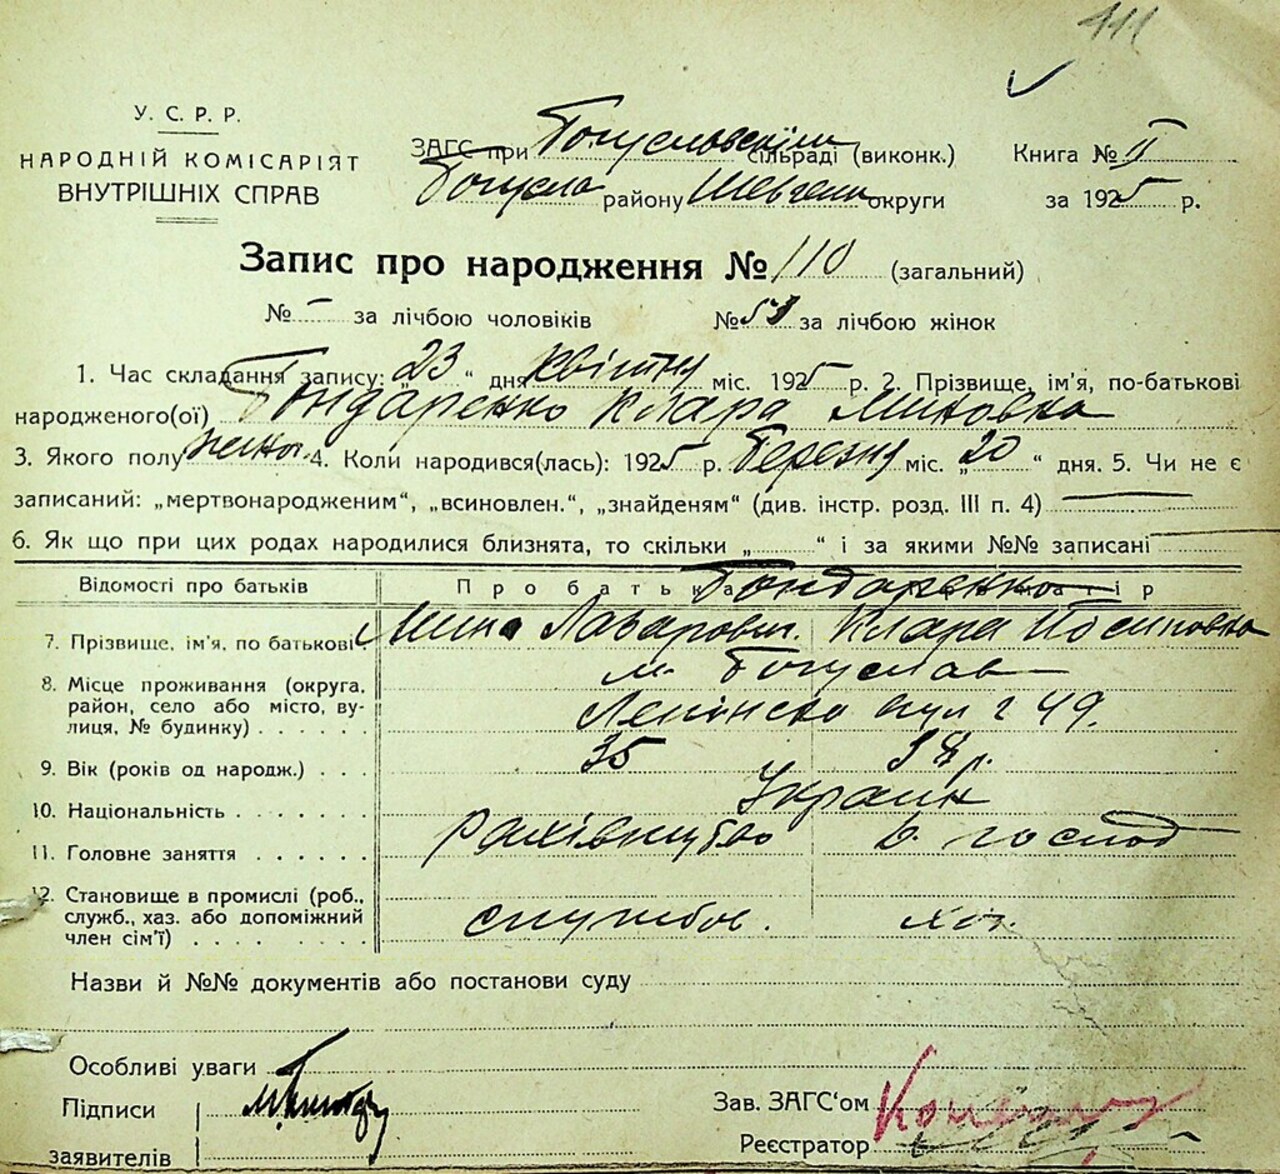 111
У. С. Р. Р.
НАРОДНІЙ КОМІСАРІЯТ
ВНУТРІШНІХ СПРАВ
ЗАГС при Богуславськім сільраді (виконк.)
Богусла району Шевчен округи
Книга № II
за 1925 р.
Запис про народження № 110 (загальний)
№ — за лічбою чоловіків № за лічбою жінок
1. Час складання запису: „23“ дня квітня міс. 1925 р. 2. Прізвище, ім'я, по-батькові
народженого(ої) Бондаренко Клара Миновна
3. Якого полу жіно. 4. Коли народився(лась): 1925 р. Березня міс. „20“ дня. 5. Чи не є
записаний: „мертвонародженим“, „всиновлен.“, „знайденям“ (див. інстр. розд. III п. 4)
6. Як що при цих родах народилися близнята, то скільки „ “ і за якими №№ записані
Відомості про батьків Про батька Бондаренко
7. Прізвище, ім'я, по батькові Мина Лазарович. Клара Иосиповна
8. Місце проживання (округа, район, село або місто, вулиця, № будинку) м. Богуслав
Ленінска вул 49.
9. Вік (років од народж.) 35 38 р.
10. Національність Украин
11. Головне заняття рахівництво д. господ
12. Становище в промислі (роб., служб., хаз. або допоміжний член сім'ї) службов. хоз.
Назви й №№ документів або постанови суду
Особливі уваги
Підписи
заявителів
Зав. ЗАГС'ом
Реєстратор